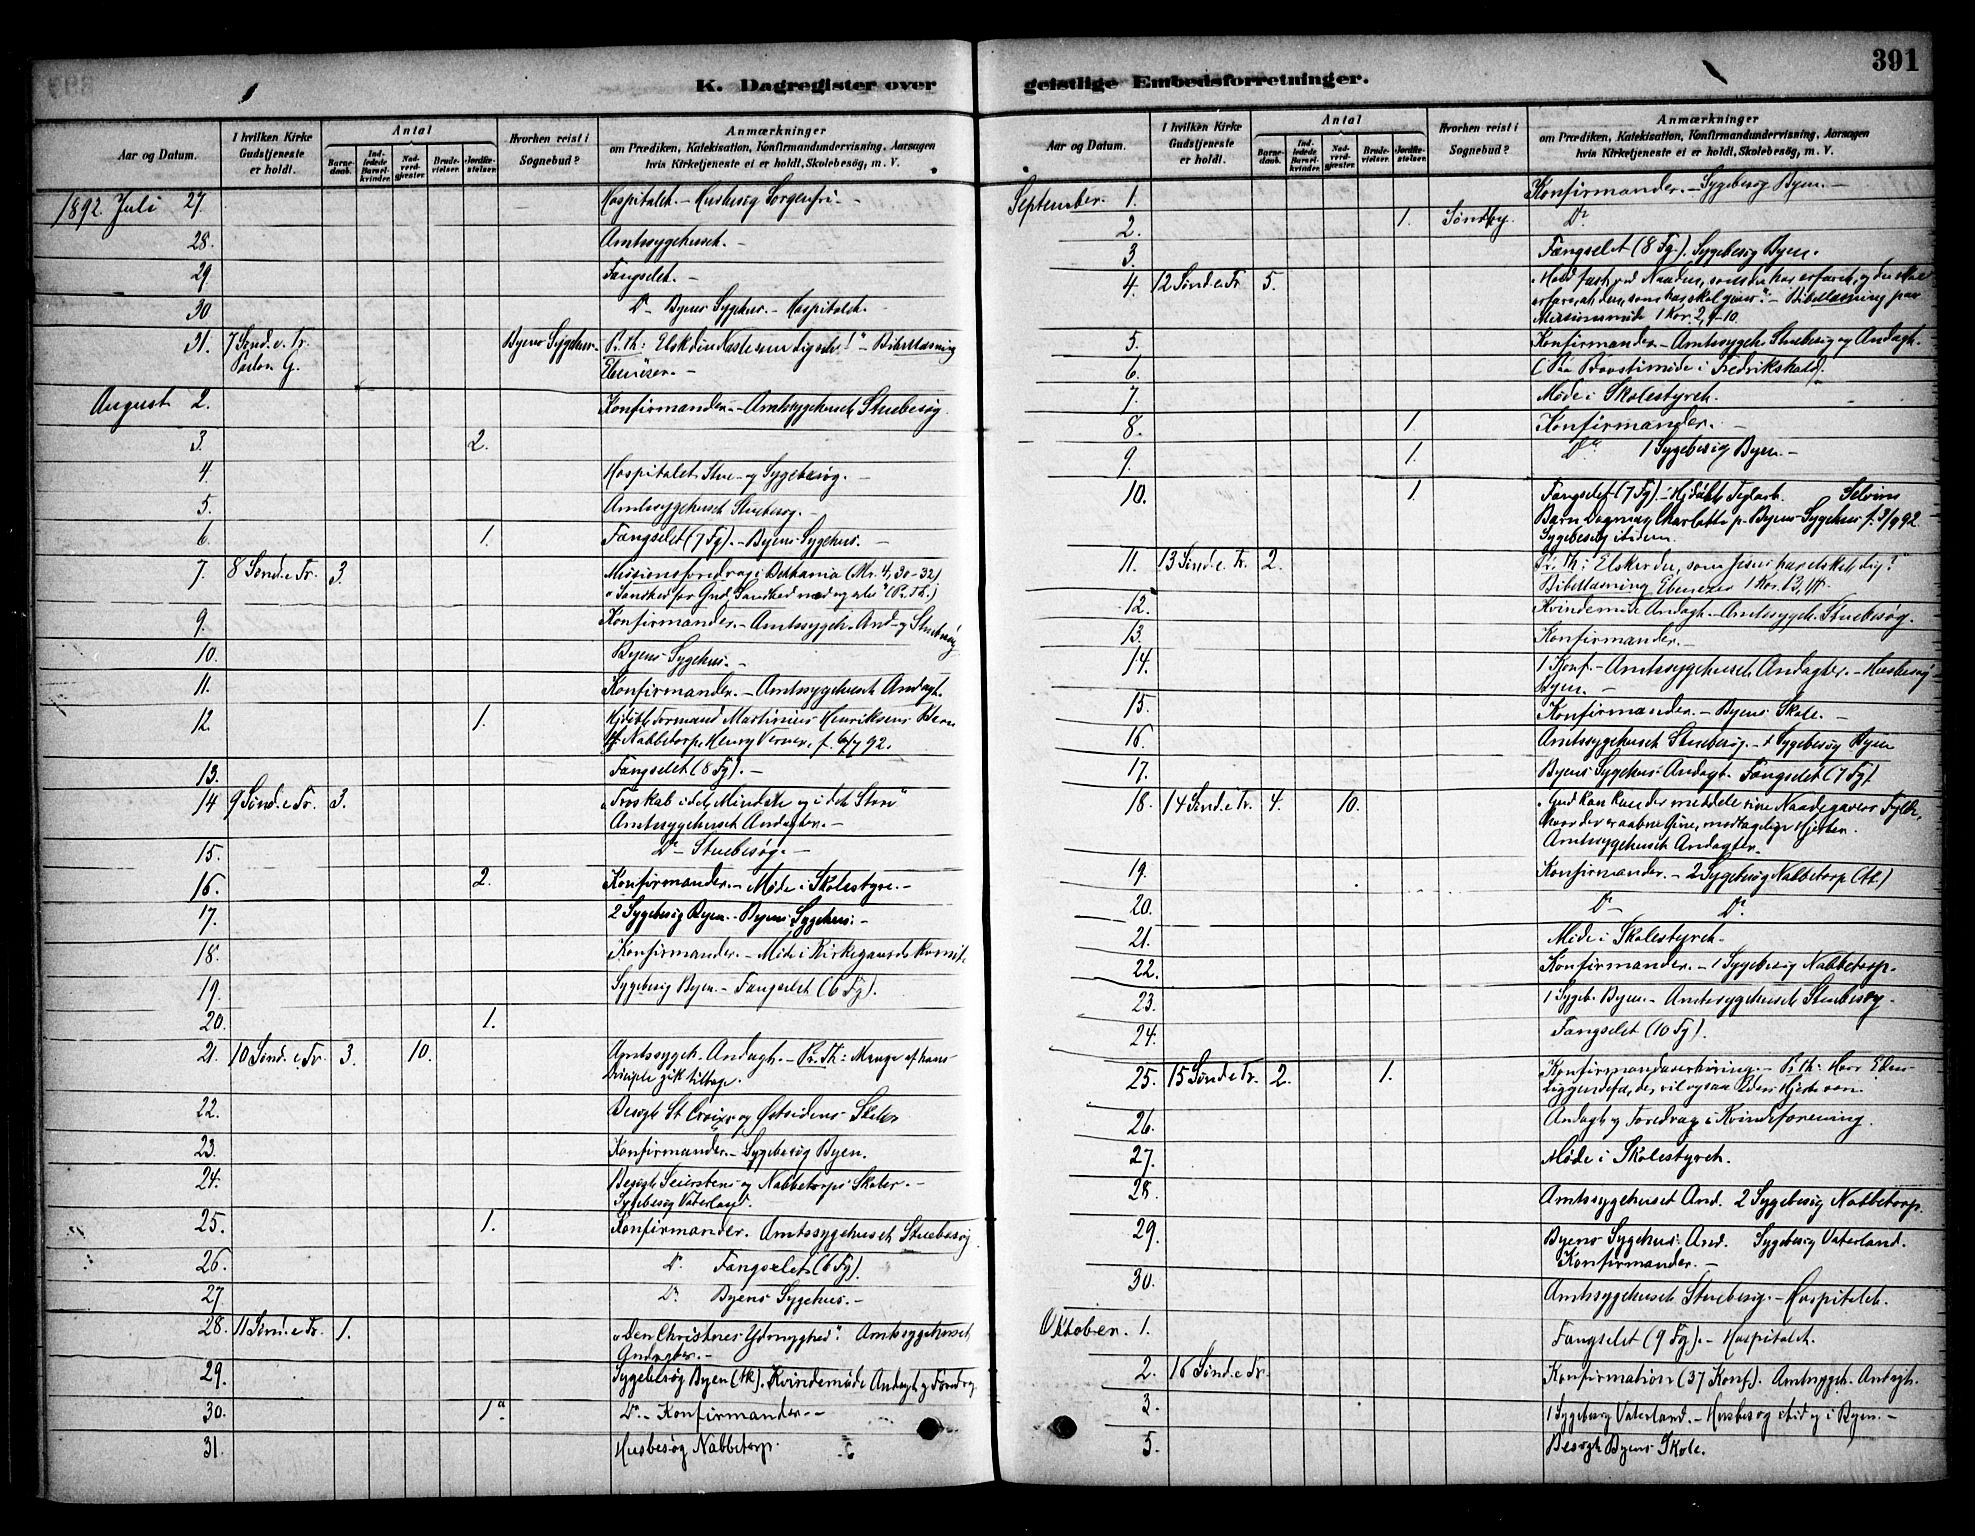 391
K. Dagregister over
Aar og Datum.
I hvilken Kirke Gudstjeneste er holdt.
Antal
Barnedaab.
Indledede Barselkvinder.
Nadverdgjæster.
Brudevielser.
Jordfæstelser.
Hvorhen reist i Sognebud?
Anmærkninger
om Prædiken, Katekisation, Konfirmandundervisning, Aarsagen
hvis Kirketjeneste ei er holdt, Skolebesøg, m. V.
1892 Juli 27. Hospitalet. - Husbesøg Sorgenfri. -
28. Amtssygehuset. -
29. Fængselet. -
30 Do Byens Sygehus. - Hospitalet. -
31. 7 Sønd. e. Tr. Byens Sygehus. Pr. Th: Elsk din Næste som dig selv!" - Bibellæsning
G. Ebenezer. -
August 2. Konfirmander. - Amtssygehuset Stuebesøg
3. 2.
4. Hospitalet Stue- og Sygebesøg. -
5. Amtssygehuset Stuebesøg. -
6. 1. Fængselet (7 Fg). - Byens Sygehus. -
7. 8 Sønd. e Tr. 3. Missionsforedrag i Bethania (Mr. 4, 30-32)
(Pr. Th.)
9. Konfirmander. - Amtssygeh. And- og Stuebesøg
10. Byens Sygehus. -
11. Konfirmander. - Amtssygehuset Andagt.
12. 1. Hjdøbt Formand Martinius Henriksens Barn
Nabbetorp, Henry Verner, f. 6/7 92.
13. Fængselet (8 Fg). -
14 9 Sønd. e Tr. 3. "Troskab i det Mindste og i det Store"
Amtssygehuset Andagter. -
15. Do Stuebesøg. -
16. 2. Konfirmander. - Møde i Skolestyre. -
17. 2 Sygebesøg Byen. - Byens Sygehus: -
18. Konfirmander. - Møde i Kirkegaardskomite
19. Sygebesøg Byen. - Fængselet (6 Fg).
20. 1.
21. 10 Sønd. e Tr. 3. 10. Amtssygeh. Andagt. - Pr. Th: Mange af hans
Disciple gik tilbage.
22. Besøgt St Croix og Østsidens Skoler
23. Konfirmander. - Sygebesøg Byen.
24. Besøgt Seierstens og Nabbetorps Skoler. -
Sygebesøg Vaterland.
25. 1. Konfirmander. Amtssygehuset Stuebesøg
26. Do Fængselet (6 Fg).
27. Do Byens Sygehus. -
28. 11 Sønd. e Tr. 1. "Den Christnes Ydmyghed". Amtssygehuset
Andagter. -
29. Sygebesøg Byen (Ak). Kvindemøde Andagt og Foredrag
30. 1 Do - Konfirmander. -
31. Husbesøg Nabbetorp.
geistlige Embedsforretninger.
Aar og Datum.
I hvilken Kirke Gudstjeneste er holdt.
Antal
Barnedaab.
Indledede Barselkvinder.
Nadverdgjæster.
Brudevielser.
Jordfæstelser.
Hvorhen reist i Sognebud?
Anmærkninger
om Prædiken, Katekisation, Konfirmandundervisning, Aarsagen
hvis Kirketjeneste ei er holdt, Skolebesøg, m. V.
September. 1. Konfirmander. - Sygebesøg Byen. -
2. 1. Søndby. Do
3. Fængselet (8 Fg). Sygebesøg Byen.
4. 12 Sønd. e Tr. 5. Hold fast ved Naaden, som du har erfaret, og du skal
erfare, at den, som har, skal gives". - Bibellæsning paa
Missionsmøde 1 Kor. 2, 9-10.
5. Konfirmander. - Amtssygeh. Stuebesøg og Andagt.
6. (Paa Provstimøde i Fredrikshald).
7. Møde i Skolestyret.
8. 1. Konfirmander. -
9. 1. Do 1 Sygebesøg Byen. -
10. 1. Fængselet (7 Fg). - Hjdøbt Teglarb. Selvins
Barn Dagmar Charlotte p. Byens Sygehus f. 3/9 92.
Sygebesøg
11. 13 Sønd. e. Tr. 2. Pr. Th: Elsker du, som Jesus har elsket dig?
Bibellæsning Ebenezer 1 Kor. 13,
12. Kvindemøde Andagt - Amtssygeh. Stuebesøg.
13. Konfirmander. -
14. 1 Konf. - Amtssygehuset Andagter. - Husbesøg
Byen. -
15. Konfirmander. - Byens Skole. -
16. Amtssygehuset Stuebesøg. - 1 Sygebesøg Byen
17. Byens Sygehus Andagt. Fængselet (7 Fg)
18. 14 Sønd. e Tr. 4. 10. "Gud kan kun der meddele sine Naadegavers Fylde,
hvor der er aabne Øine, modtagelige Hjerter.
Amtssygehuset Andagter.
19. Konfirmander. - 2 Sygebesøg Nabbetorp (Ak)
20. Do Do
21. Møde i Skolestyret.
22. Konfirmander. - 1 Sygebesøg Nabbetorp.
23. 1 Sygeb. Byen - Amtssygehuset Stuebesøg -
24. Fængselet (10 Fg).
25. 15 Sønd. e Tr. 2. 1. - Pr. Th: Hvor Eders
Liggendefæ, der vil ogsaa Eders Hjerte være.
26. Andagt og Foredrag i Kvindeforening.
27. Møde i Skolestyret.
28 Amtssygehuset And. 2 Sygebesøg Nabbetorp.
29. Byens Sygehus: And. Sygebesøg Vaterland.
Konfirmander. -
30. Amtssygehuset Stuebesøg. - Hospitalet.
Oktober. 1. Fængselet (9 Fg). - Hospitalet.
2. 16 Sønd. e Tr. Konfirmation (37 Konf). Amtssygeh. Andagt.
3. 1 Sygebesøg Vaterland. - Husbesøg i Byen. -
5. Besøgt Byens Skole.